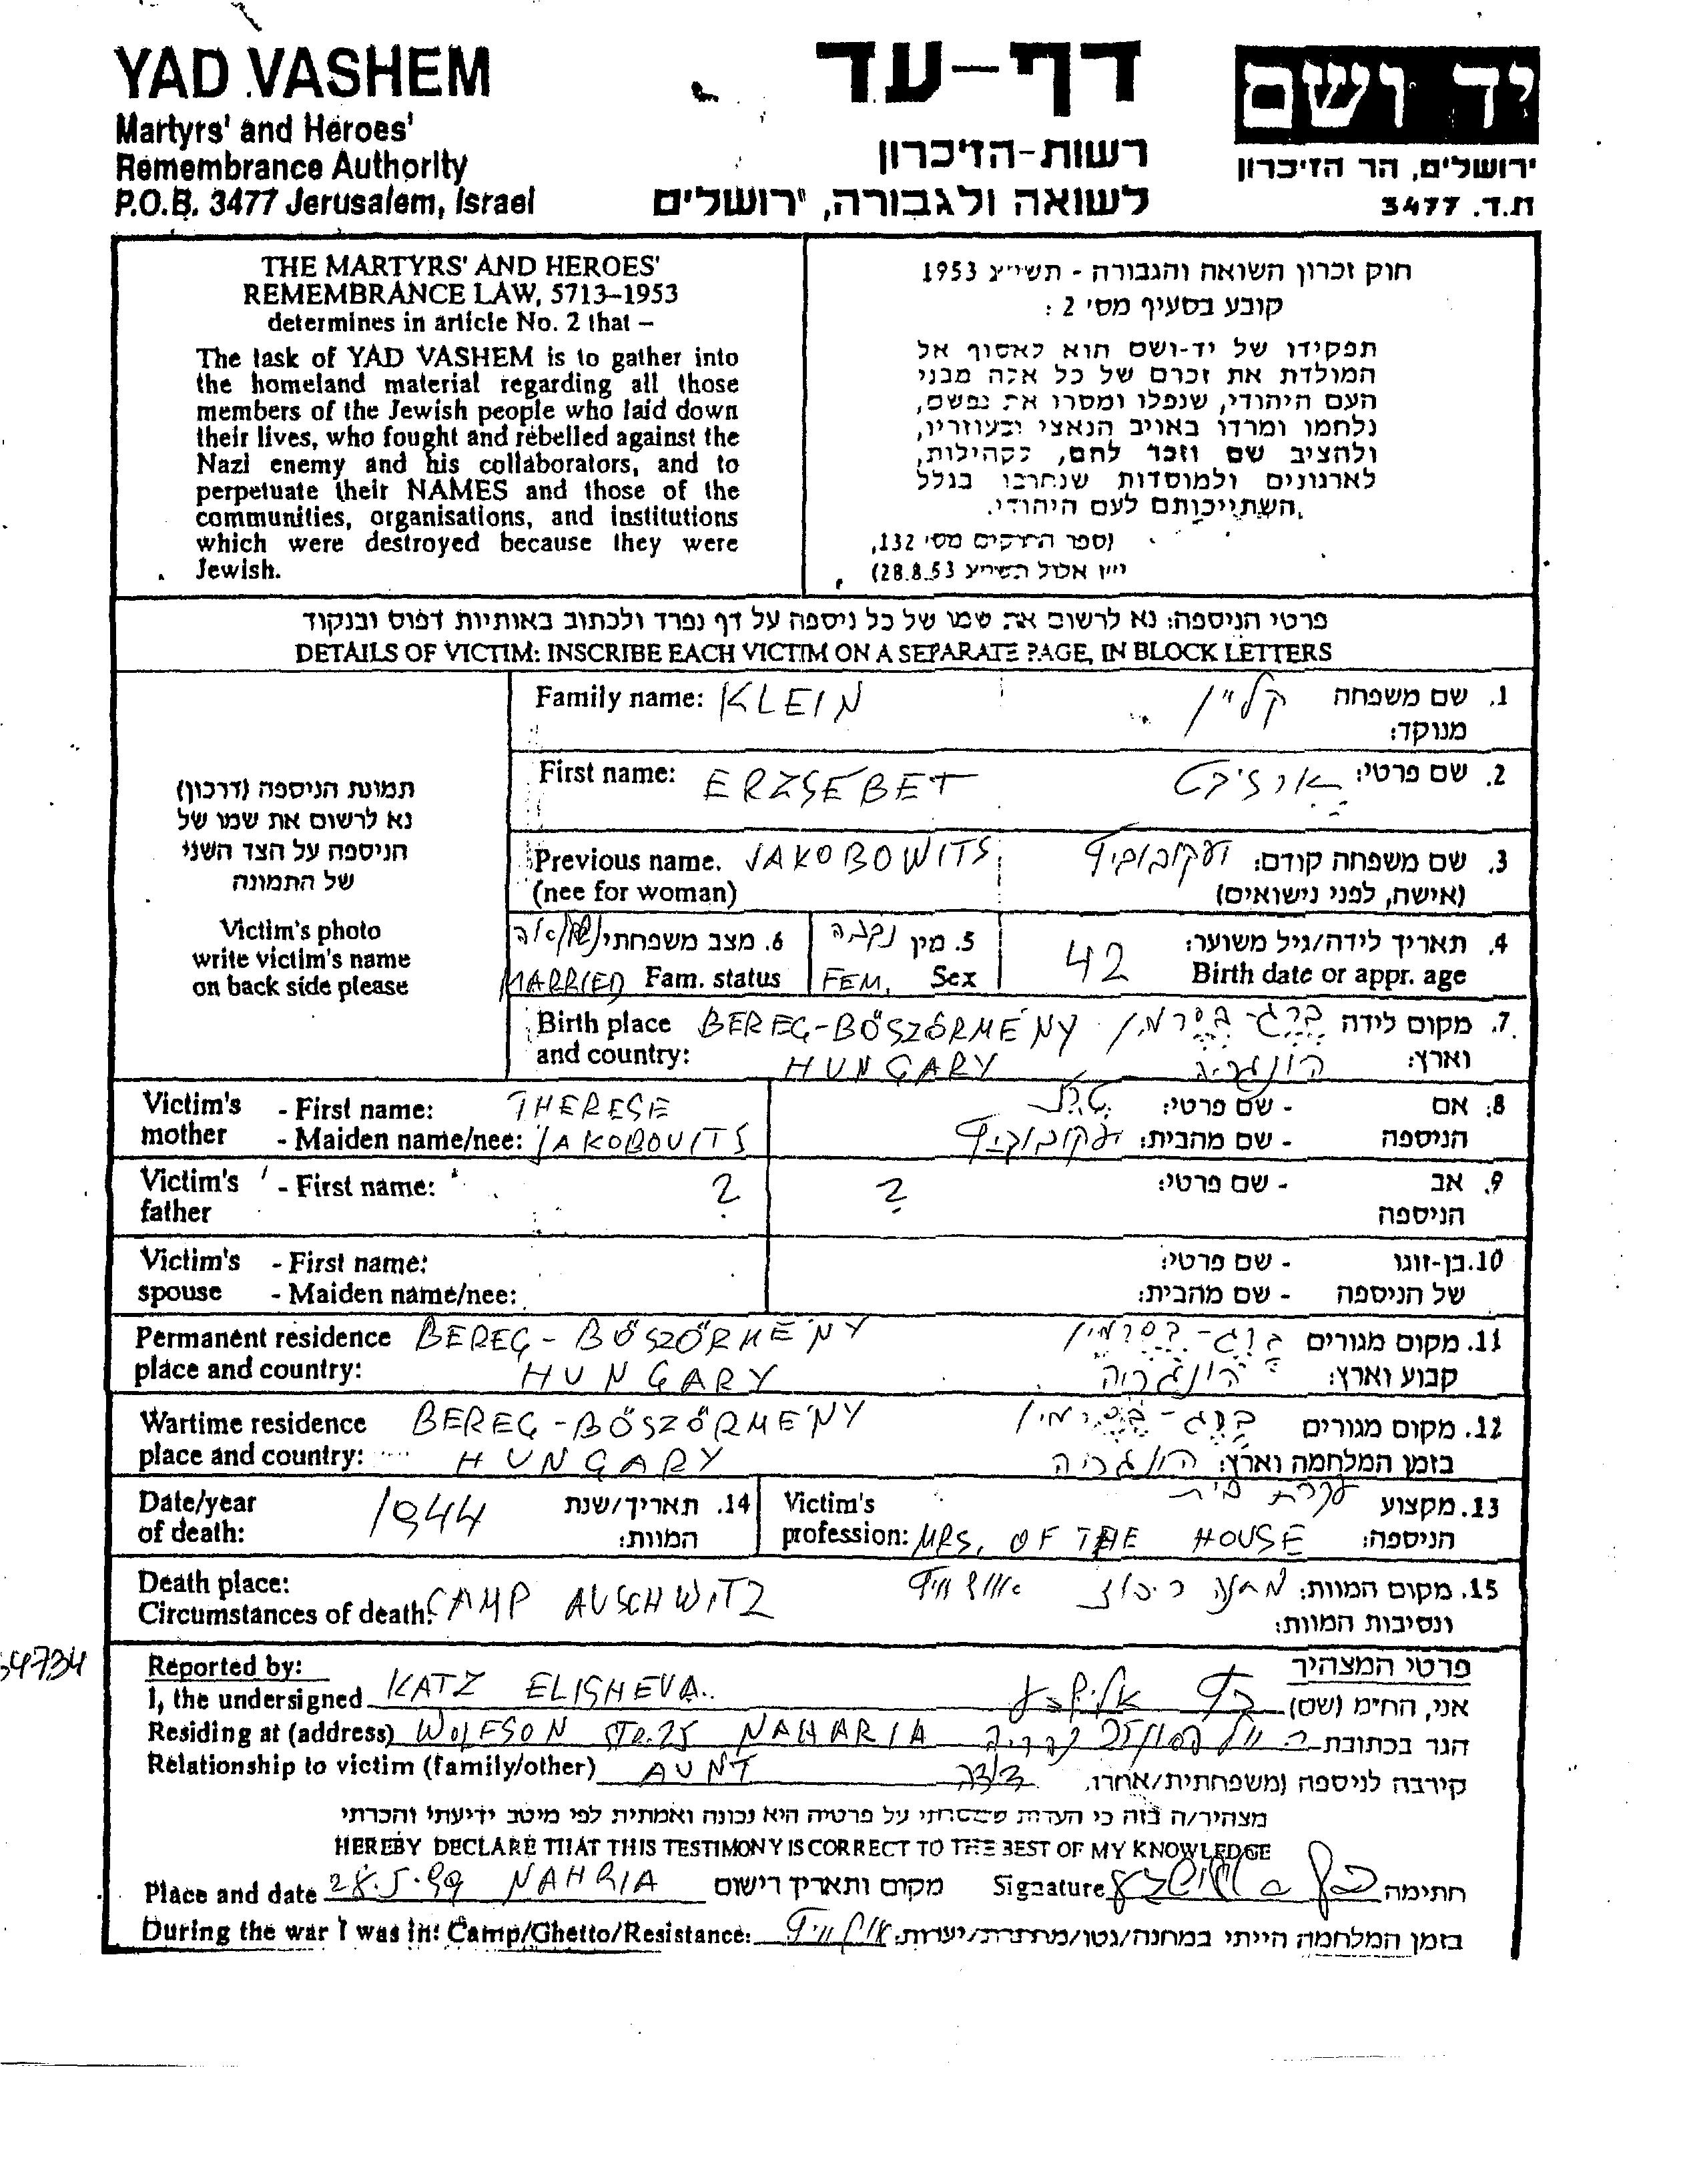 YAD VASHEM
Martyrs' and Heroes'
Remembrance Authority
P.O.B. 3477 Jerusalem, Israel
דף-עד
רשות-הזיכרון
לשואה ולגבורה, ירושלים
יד ושם
ירושלים, הר הזיכרון
ת.ד. 3477
THE MARTYRS' AND HEROES'
REMEMBRANCE LAW, 5713–1953
determines in article No. 2 that –
The task of YAD VASHEM is to gather into
the homeland material regarding all those
members of the Jewish people who laid down
their lives, who fought and rebelled against the
Nazi enemy and his collaborators, and to
perpetuate their NAMES and those of the
communities, organisations, and institutions
which were destroyed because they were
Jewish.
חוק זכרון השואה והגבורה - תשי״ג 1953
קובע בסעיף מס׳ 2 :
תפקידו של יד-ושם הוא לאסוף אל
המולדת את זכרם של כל אלה מבני
העם היהודי, שנפלו ומסרו את נפשם,
נלחמו ומרדו באויב הנאצי ובעוזריו,
ולהציב שם וזכר להם, לקהילות,
לארגונים ולמוסדות שנחרבו בגלל
השתייכותם לעם היהודי.
(ספר החוקים מס׳ 132,
י״ז אלול תשי״ג 28.8.53)
פרטי הניספה: נא לרשום את שמו של כל ניספה על דף נפרד ולכתוב באותיות דפוס ובנקוד
DETAILS OF VICTIM: INSCRIBE EACH VICTIM ON A SEPARATE PAGE, IN BLOCK LETTERS
תמונת הניספה (דרכון)
נא לרשום את שמו של
הניספה על הצד השני
של התמונה
Victim's photo
write victim's name
on back side please
Family name: KLEIN קליין 1. שם משפחה
מנוקד:
First name: ERZSEBET 2. שם פרטי:
Previous name. JAKOBOWITS יעקובוביץ 3. שם משפחה קודם:
(nee for woman) (אישה, לפני נישואים)
6. מצב משפחתי נשואה 5. מין נקבה 4. תאריך לידה/גיל משוער:
MARRIED Fam. status FEM. Sex 42 Birth date or appr. age
Birth place BEREG-BÖSZÖRMÉNY ברג-בסרמין 7. מקום לידה
and country: HUNGARY הונגריה וארץ:
Victim's - First name: THERESE - שם פרטי: 8. אם
mother - Maiden name/nee: JAKOBOVITS יעקובוביץ - שם מהבית: הניספה
Victim's - First name: ? ? - שם פרטי: 9. אב
father הניספה
Victim's - First name: - שם פרטי: 10. בן-זוגו
spouse - Maiden name/nee: - שם מהבית: של הניספה
Permanent residence BEREG-BÖSZÖRMÉNY ברג-בסרמין 11. מקום מגורים
place and country: HUNGARY הונגריה קבוע וארץ:
Wartime residence BEREG-BÖSZÖRMÉNY ברג-בסרמין 12. מקום מגורים
place and country: HUNGARY הונגריה בזמן המלחמה וארץ:
Date/year 1944 14. תאריך/שנת Victim's עקרת בית 13. מקצוע
of death: המוות: profession: MRS. OF THE HOUSE הניספה:
Death place: מחנה ריכוז אושוויץ 15. מקום המוות:
Circumstances of death: CAMP AUSCHWITZ ונסיבות המוות:
34734
Reported by: פרטי המצהיר
I, the undersigned KATZ ELISHEVA כץ אלישבע אני, החי״מ (שם)
Residing at (address) WOLFSON STR. 25 NAHARIA נהריה הגר בכתובת
Relationship to victim (family/other) AUNT דודה קירבה לניספה (משפחתית/אחר)
מצהיר/ה בזה כי העדות שמסרתי על פרטיה היא נכונה ואמתית לפי מיטב ידיעתי והכרתי
HEREBY DECLARE THAT THIS TESTIMONY IS CORRECT TO THE BEST OF MY KNOWLEDGE
Place and date 28.5.99 NAHRIA מקום ותאריך רישום Signature כץ אלישבע חתימה
During the war I was in: Camp/Ghetto/Resistance: אושוויץ בזמן המלחמה הייתי במחנה/גטו/מחתרת/יערות: